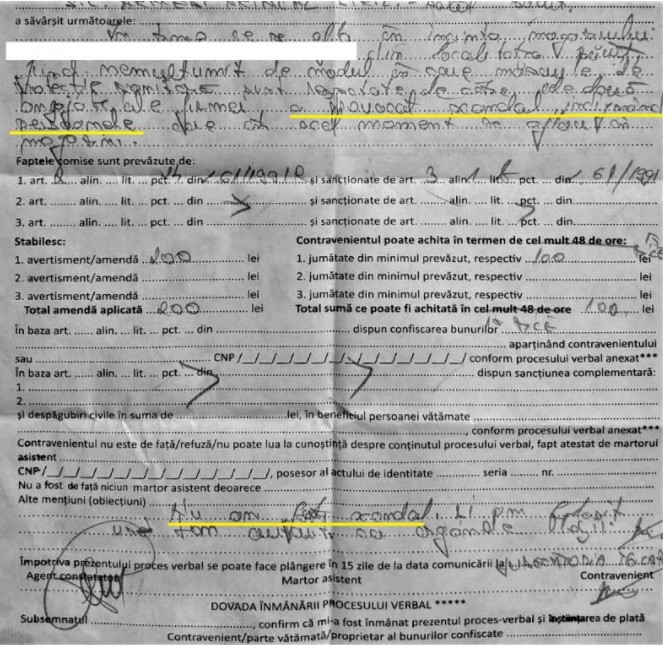 a săvârșit următoarele:
În timp ce se afla în incinta magazinului
din localitatea
fiind nemulțumit de modul în care măsurile de
protecție sanitară sunt respectate de către cele două
angajate ale firmei a provocat scandal,
persoanele care în acel moment se aflau în
magazin.
Faptele comise sunt prevăzute de:
1. art. alin. ... lit. ... pct. din 61/1991 R și sancționate de art. 3 alin. 1 lit. pct. ... din 61/1991
2. art. .... alin. .... lit. .... pct. .... din .... și sancționate de art. .... alin. .... lit. .... pct. .... din ....
3. art. .... alin. .... lit. .... pct. .... din .... și sancționate de art. .... alin. .... lit. .... pct. .... din ....
Stabilesc: Contravenientul poate achita în termen de cel mult 48 de ore:
1. avertisment/amendă ...200... lei 1. jumătate din minimul prevăzut, respectiv ...100... lei
2. avertisment/amendă .... lei 2. jumătate din minimul prevăzut, respectiv .... lei
3. avertisment/amendă .... lei 3. jumătate din minimul prevăzut, respectiv .... lei
Total amendă aplicată ...200... lei Total sumă ce poate fi achitată în cel mult 48 de ore ...100... lei
În baza art. .... alin. ... lit. ... pct. ... din .... dispun confiscarea bunurilor
.... aparținând contravenientului
sau .... CNP /_/_/_/_/_/_/_/_/_/_/_/_/_/ conform procesului verbal anexat***
În baza art. .... alin. ... lit. ... pct. ... din .... dispun sancțiunea complementară:
1. ....
2. ....
și despăgubiri civile în suma de .... lei, în beneficiul persoanei vătămate ....
...., conform procesului verbal anexat***
Contravenientul nu este de față/refuză/nu poate lua la cunoștință despre conținutul procesului verbal, fapt atestat de martorul
asistent ....
CNP /_/_/_/_/_/_/_/_/_/_/_/_/_/, posesor al actului de identitate .... seria .... nr. ....
Nu a fost de față niciun martor asistent deoarece ....
Alte mențiuni (obiecțiuni) Nu am făcut scandal.
organele
Împotriva prezentului proces verbal se poate face plângere în 15 zile de la data comunicării la
Agent constatator Martor asistent Contravenient
DOVADA ÎNMÂNĂRII PROCESULUI VERBAL *****
Subsemnatul ...., confirm că mi-a fost înmânat prezentul proces-verbal și înștiințarea de plată
Contravenient/parte vătămată/proprietar al bunurilor confiscate ....